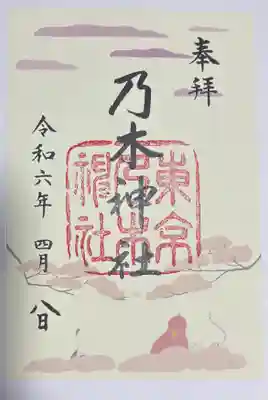 奉拝
乃木神社
東京
乃木
神社
令和六年 四月 八日